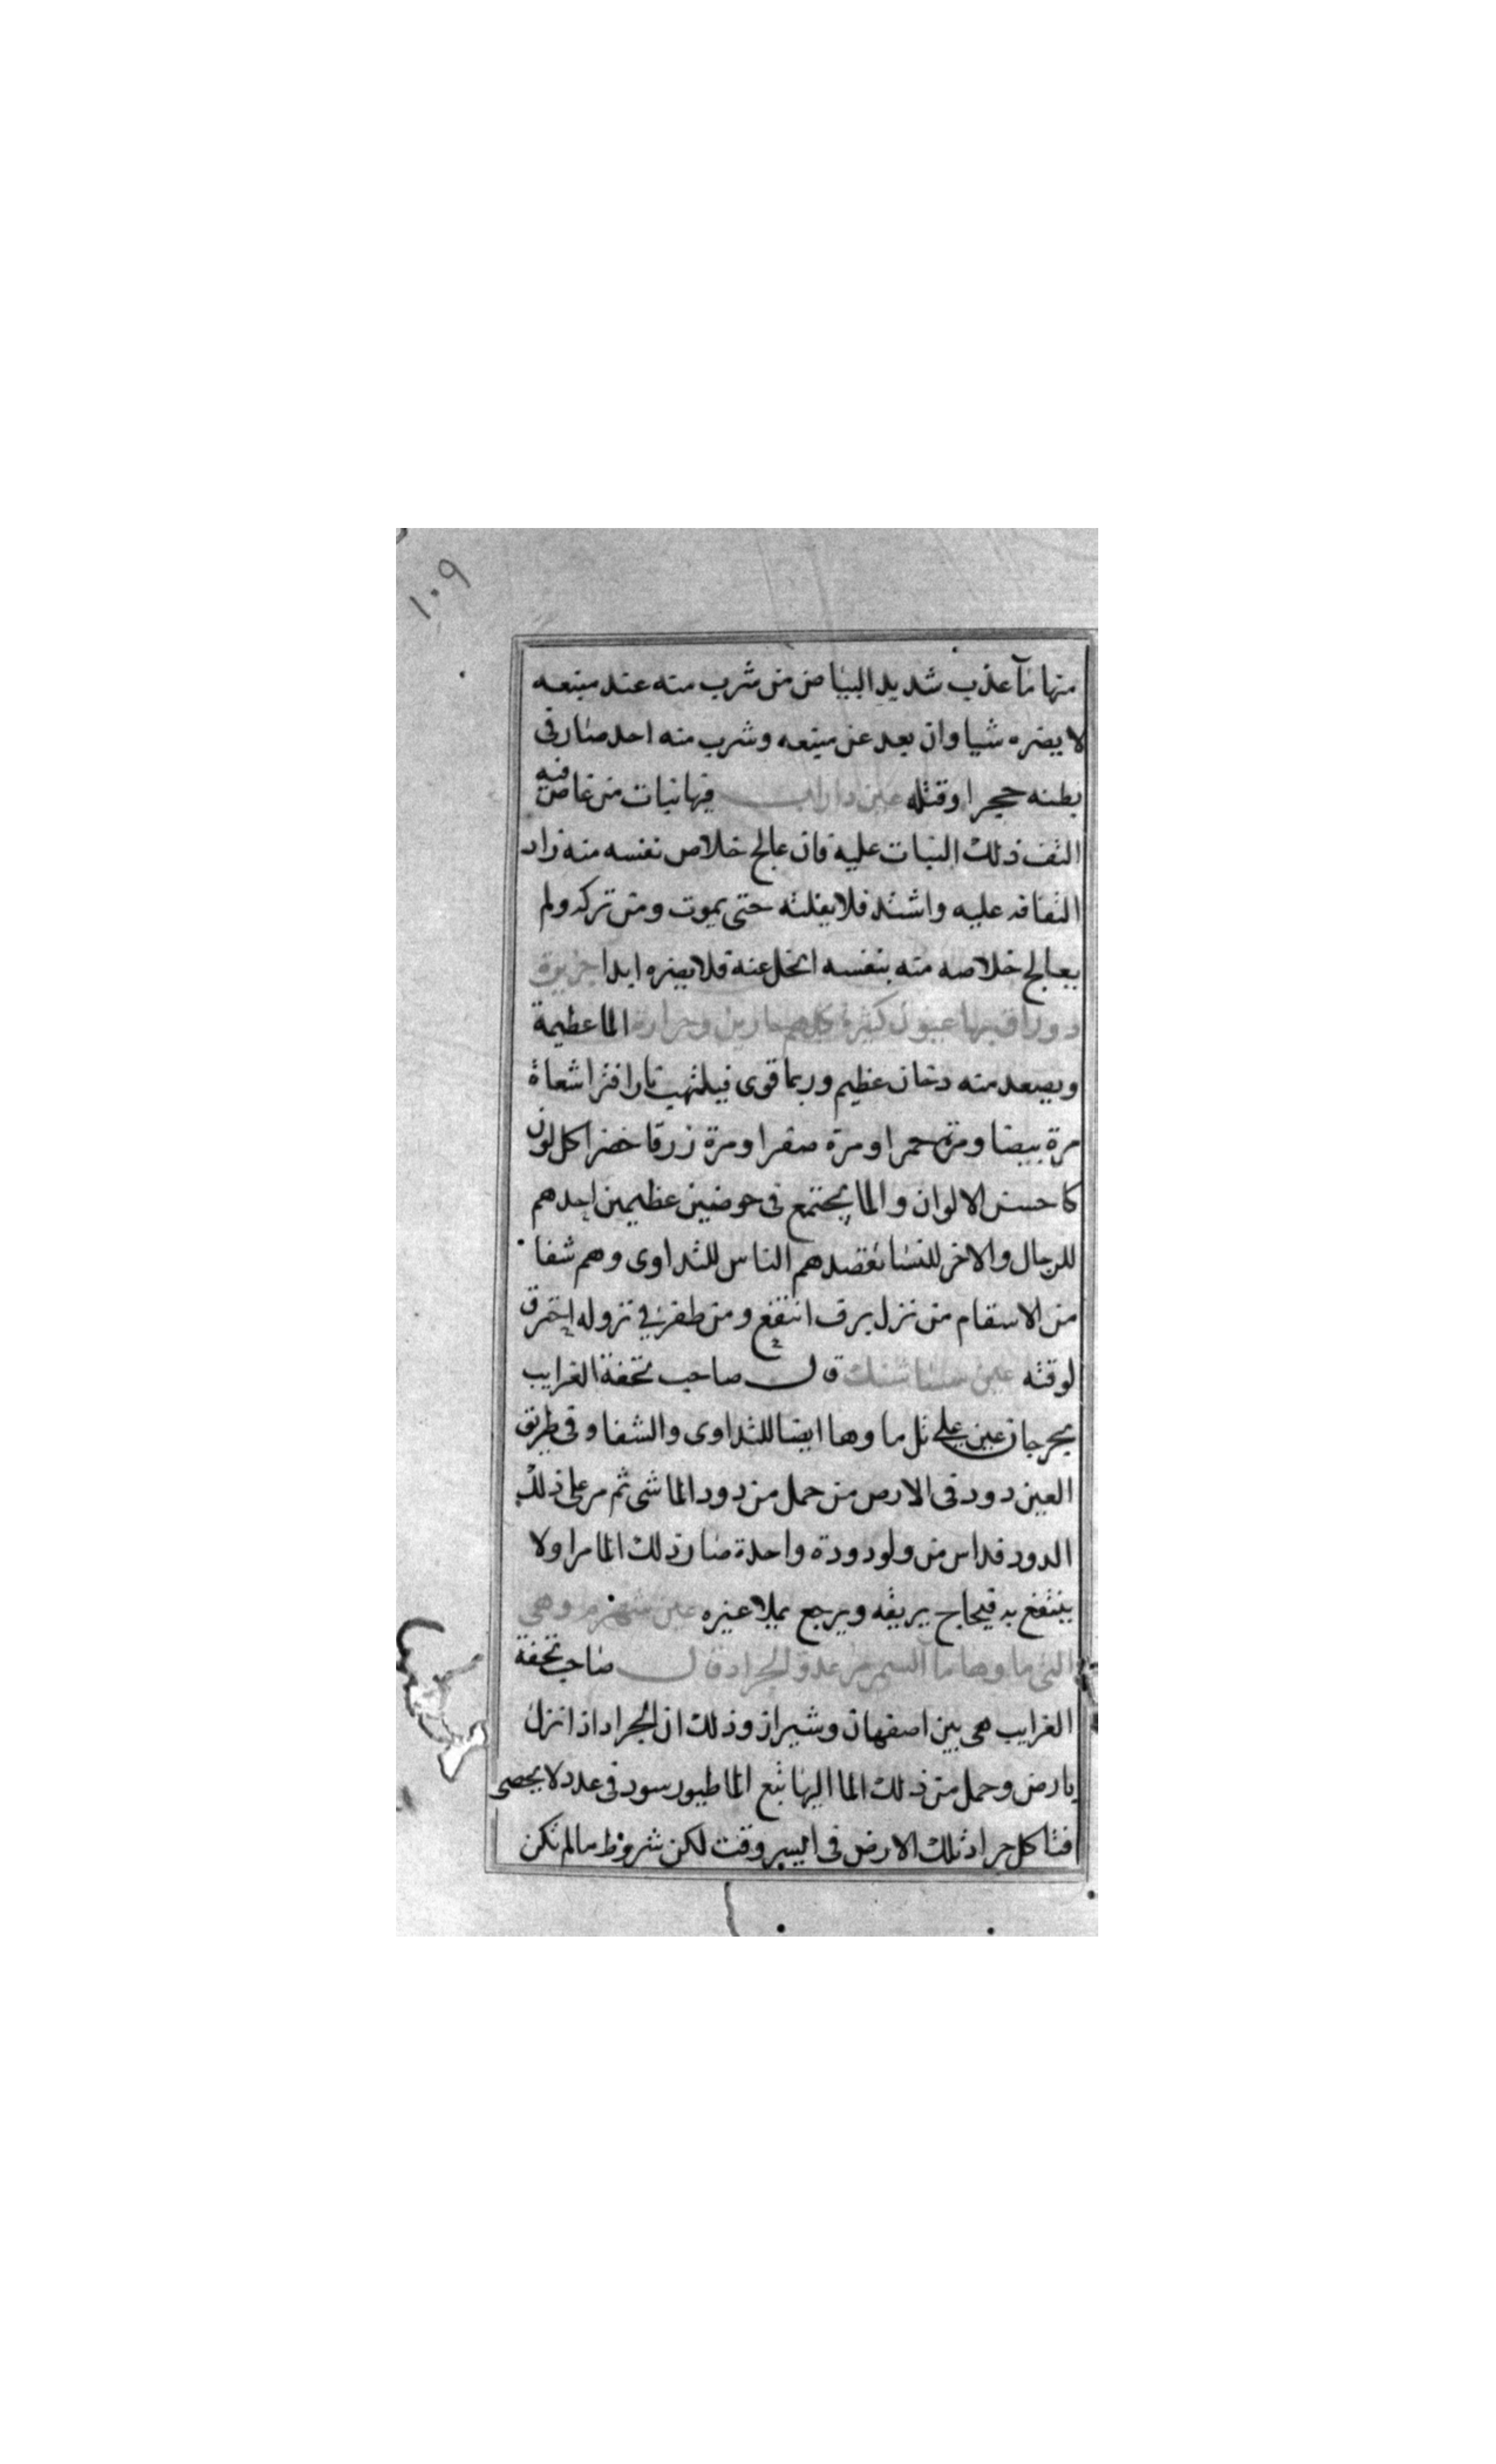 ١٠٩
منها مآ عذب شديد البياض من شرب منه عند منبعه
لا يضره شيا وان بعد عن منبعه وشرب منه احد صار في
بطنه حجرا وقتله عين داراب فيها نبات من غاص فيه
التف ذلك النبات عليه فان عالج خلاص نفسه منه زاد
التفافه عليه واشتد فلا يفلته حتى يموت ومن تركه ولم
يعالج خلاصه منه بنفسه انحل عنه فلا يضره ابدا جزيرة
دوراق بها عيون كثيرة كلهم حارين وحرارة الما عظيمة
ويصعد منه دخان عظيم وربما قوى فيلتهب نارا فترا شعاة
مرة بيضا ومرة حمرا ومرة صفرا ومرة زرقا خضرا كل لون
كاحسن الالوان والما يجتمع في حوضين عظيمين احدهم
للرجال والاخر للنسا تقصدهم الناس للتداوى وهم شفا
من الاسقام من نزل برف انتفع ومن طفر في نزوله احترق
لوقته عين قال صاحب تحفة الغرايب
بجرجان عين على تل ما وها ايضا للتداوى والشفا وفي طريق
العين دود في الارض من حمل من دود الما شى ثم مر على ذلك
الدود فداس من ولو دودة واحدة صار ذلك الما مرا ولا
ينتفع به فيحاج يريقه ويرجع يملا غيره عين شهرم وهى
التى ما وها مآ السمرمر عدو الجراد قال صاحب تحفة
الغرايب هى بين اصفهان وشيراز وذلك ان الجراد اذا نزل
بارض وحمل من ذلك الما اليها تبع الما طيور سود في عدد لا يحصى
فتاكل جراد تلك الارض في ايسر وقت لكن شروط مالم تكن